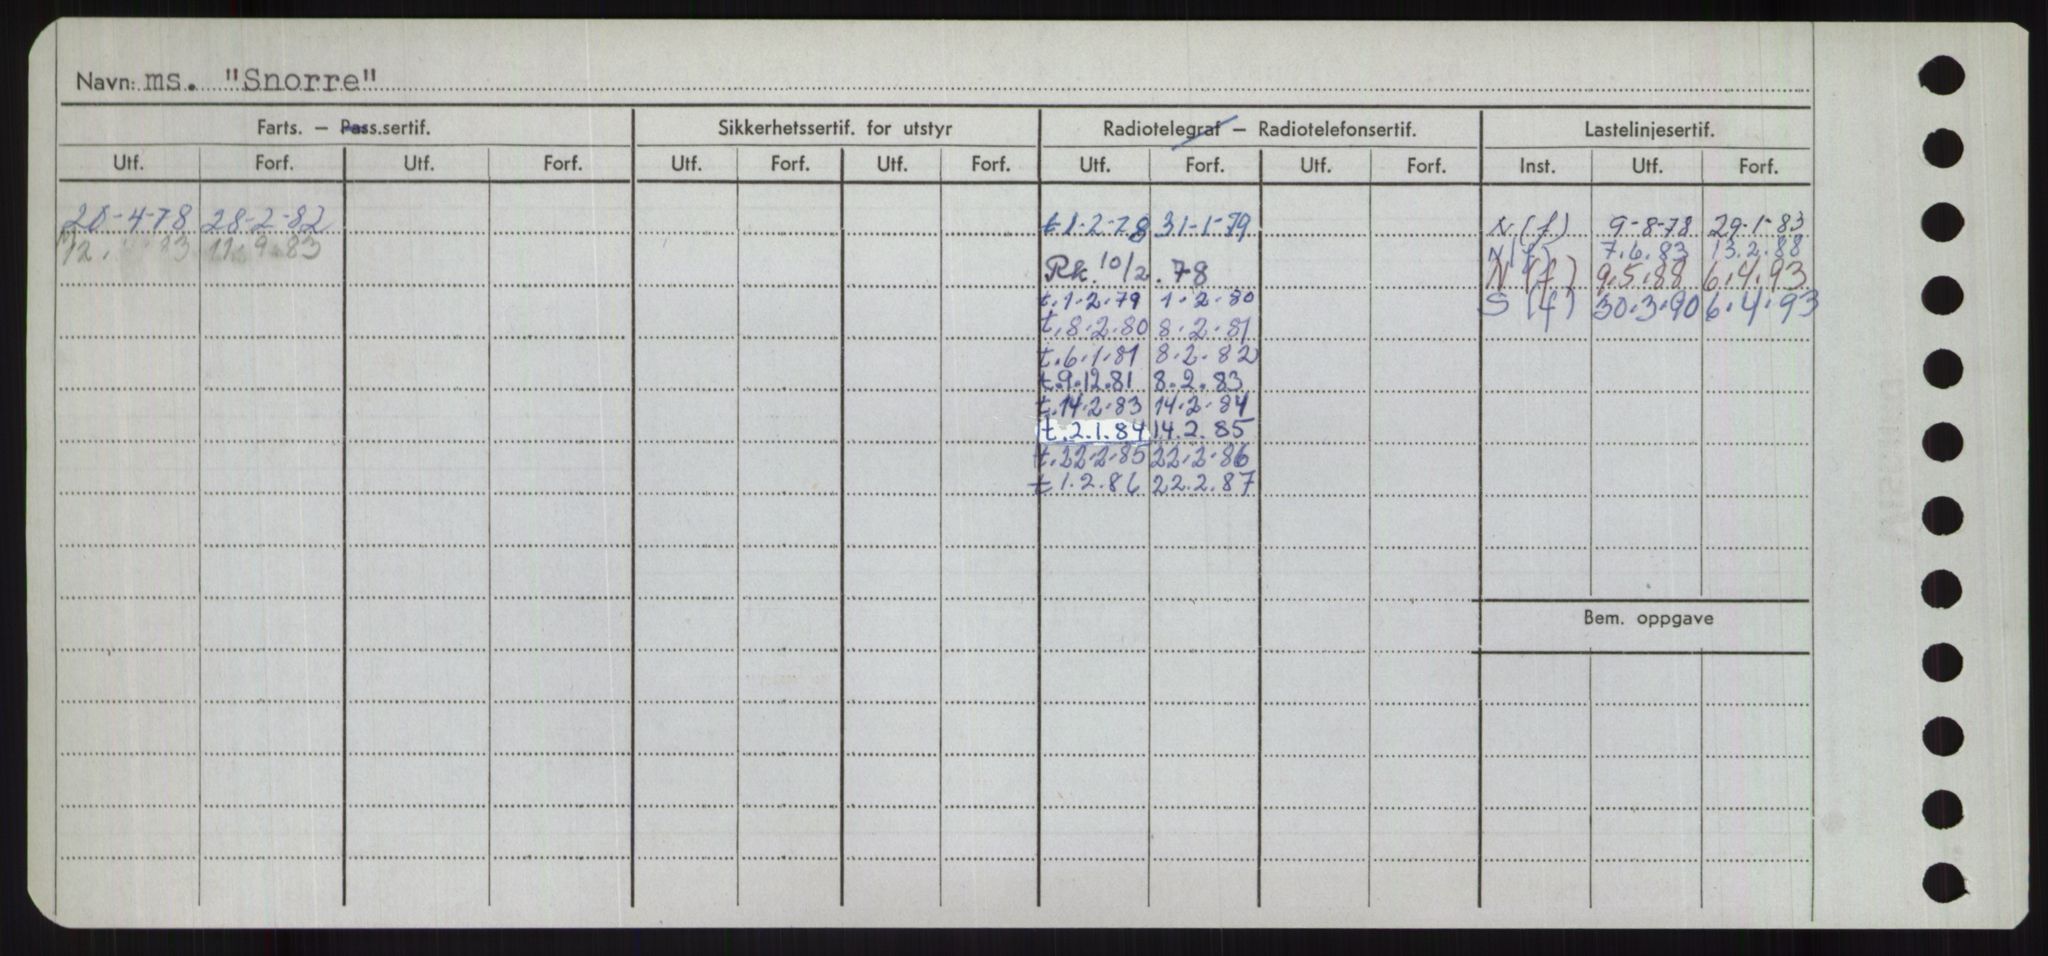 Navn: ms. "Snorre"
Farts. – Pass.sertif. Sikkerhetssertif. for utstyr Radiotelegraf – Radiotelefonsertif. Lastelinjesertif.
Utf. Forf. Utf. Forf. Utf. Forf. Utf. Forf. Utf. Forf. Utf. Forf. Inst. Utf. Forf.
28-4-78 28-2-82 t 1-2-78 31-1-79 N (f) 9-8-78 29-1-83
11.9.83 N (f) 7.6.83 13.2.88
Rk. 10/2.78 N (f) 9.5.88 6.4.93
t.1.2.79 1.2.80 S (f) 30.3.90 6.4.93
t.8.2.80 8.2.81
t.6.1.81 8.2.82
t.9.12.81 8.2.83
t.14.2.83 14.2.84
t.2.1.84 14.2.85
t.22.2.85 22.2.86
t 1.2.86 22.2.87
Bem. oppgave